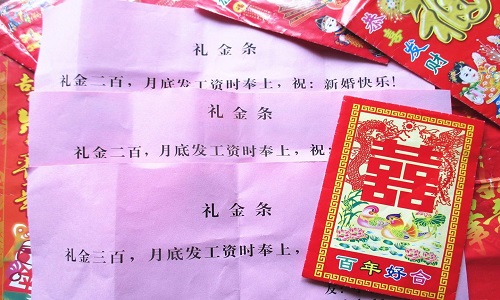 恭喜发财
礼金条
礼金二百，月底发工资时奉上，祝：新婚快乐！
礼金条
礼金二百，月底发工资时奉上，祝：
礼金条
礼金三百，月底发工资时奉上，
友：
囍
百年好合